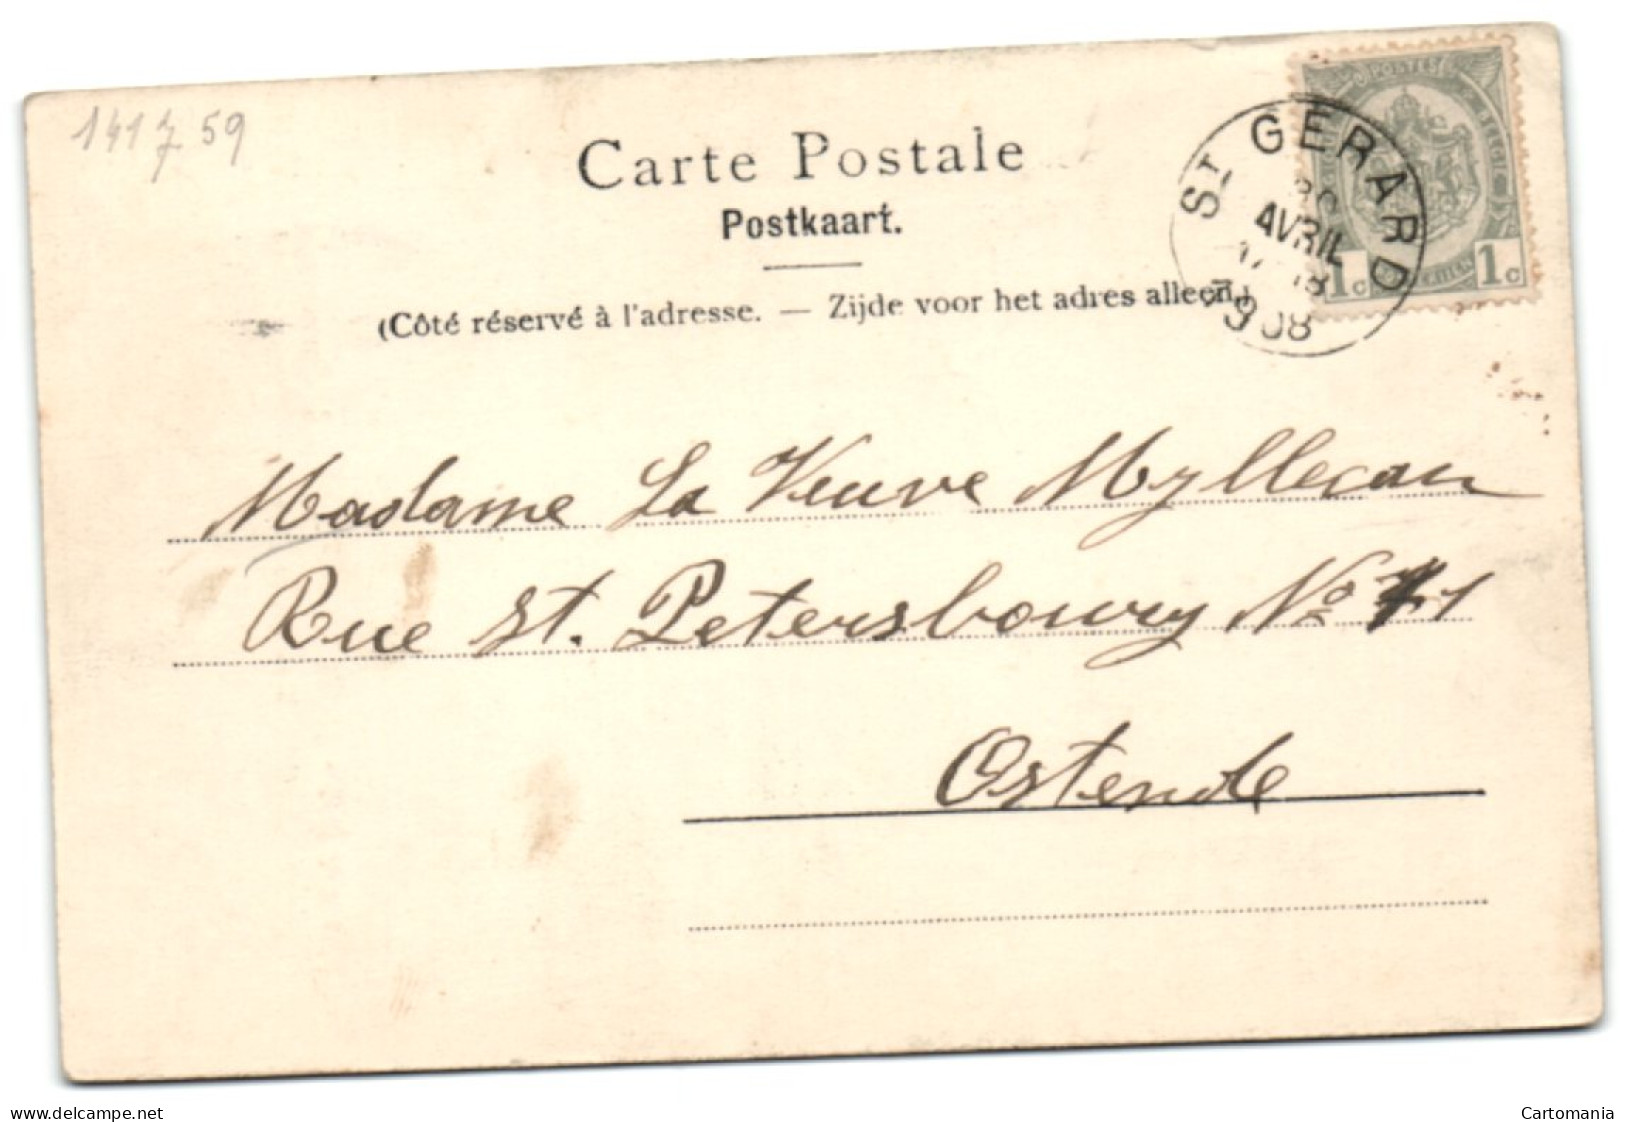 141759
Carte Postale
Postkaart.
(Côté réservé à l'adresse. — Zijde voor het adres alleen.)
POSTES
1c 1c
ST GERARD
AVRIL
1908
Madame La Veuve Myllecan
Rue St. Petersbourg No 1
Ostende
www.delcampe.net
Cartomania